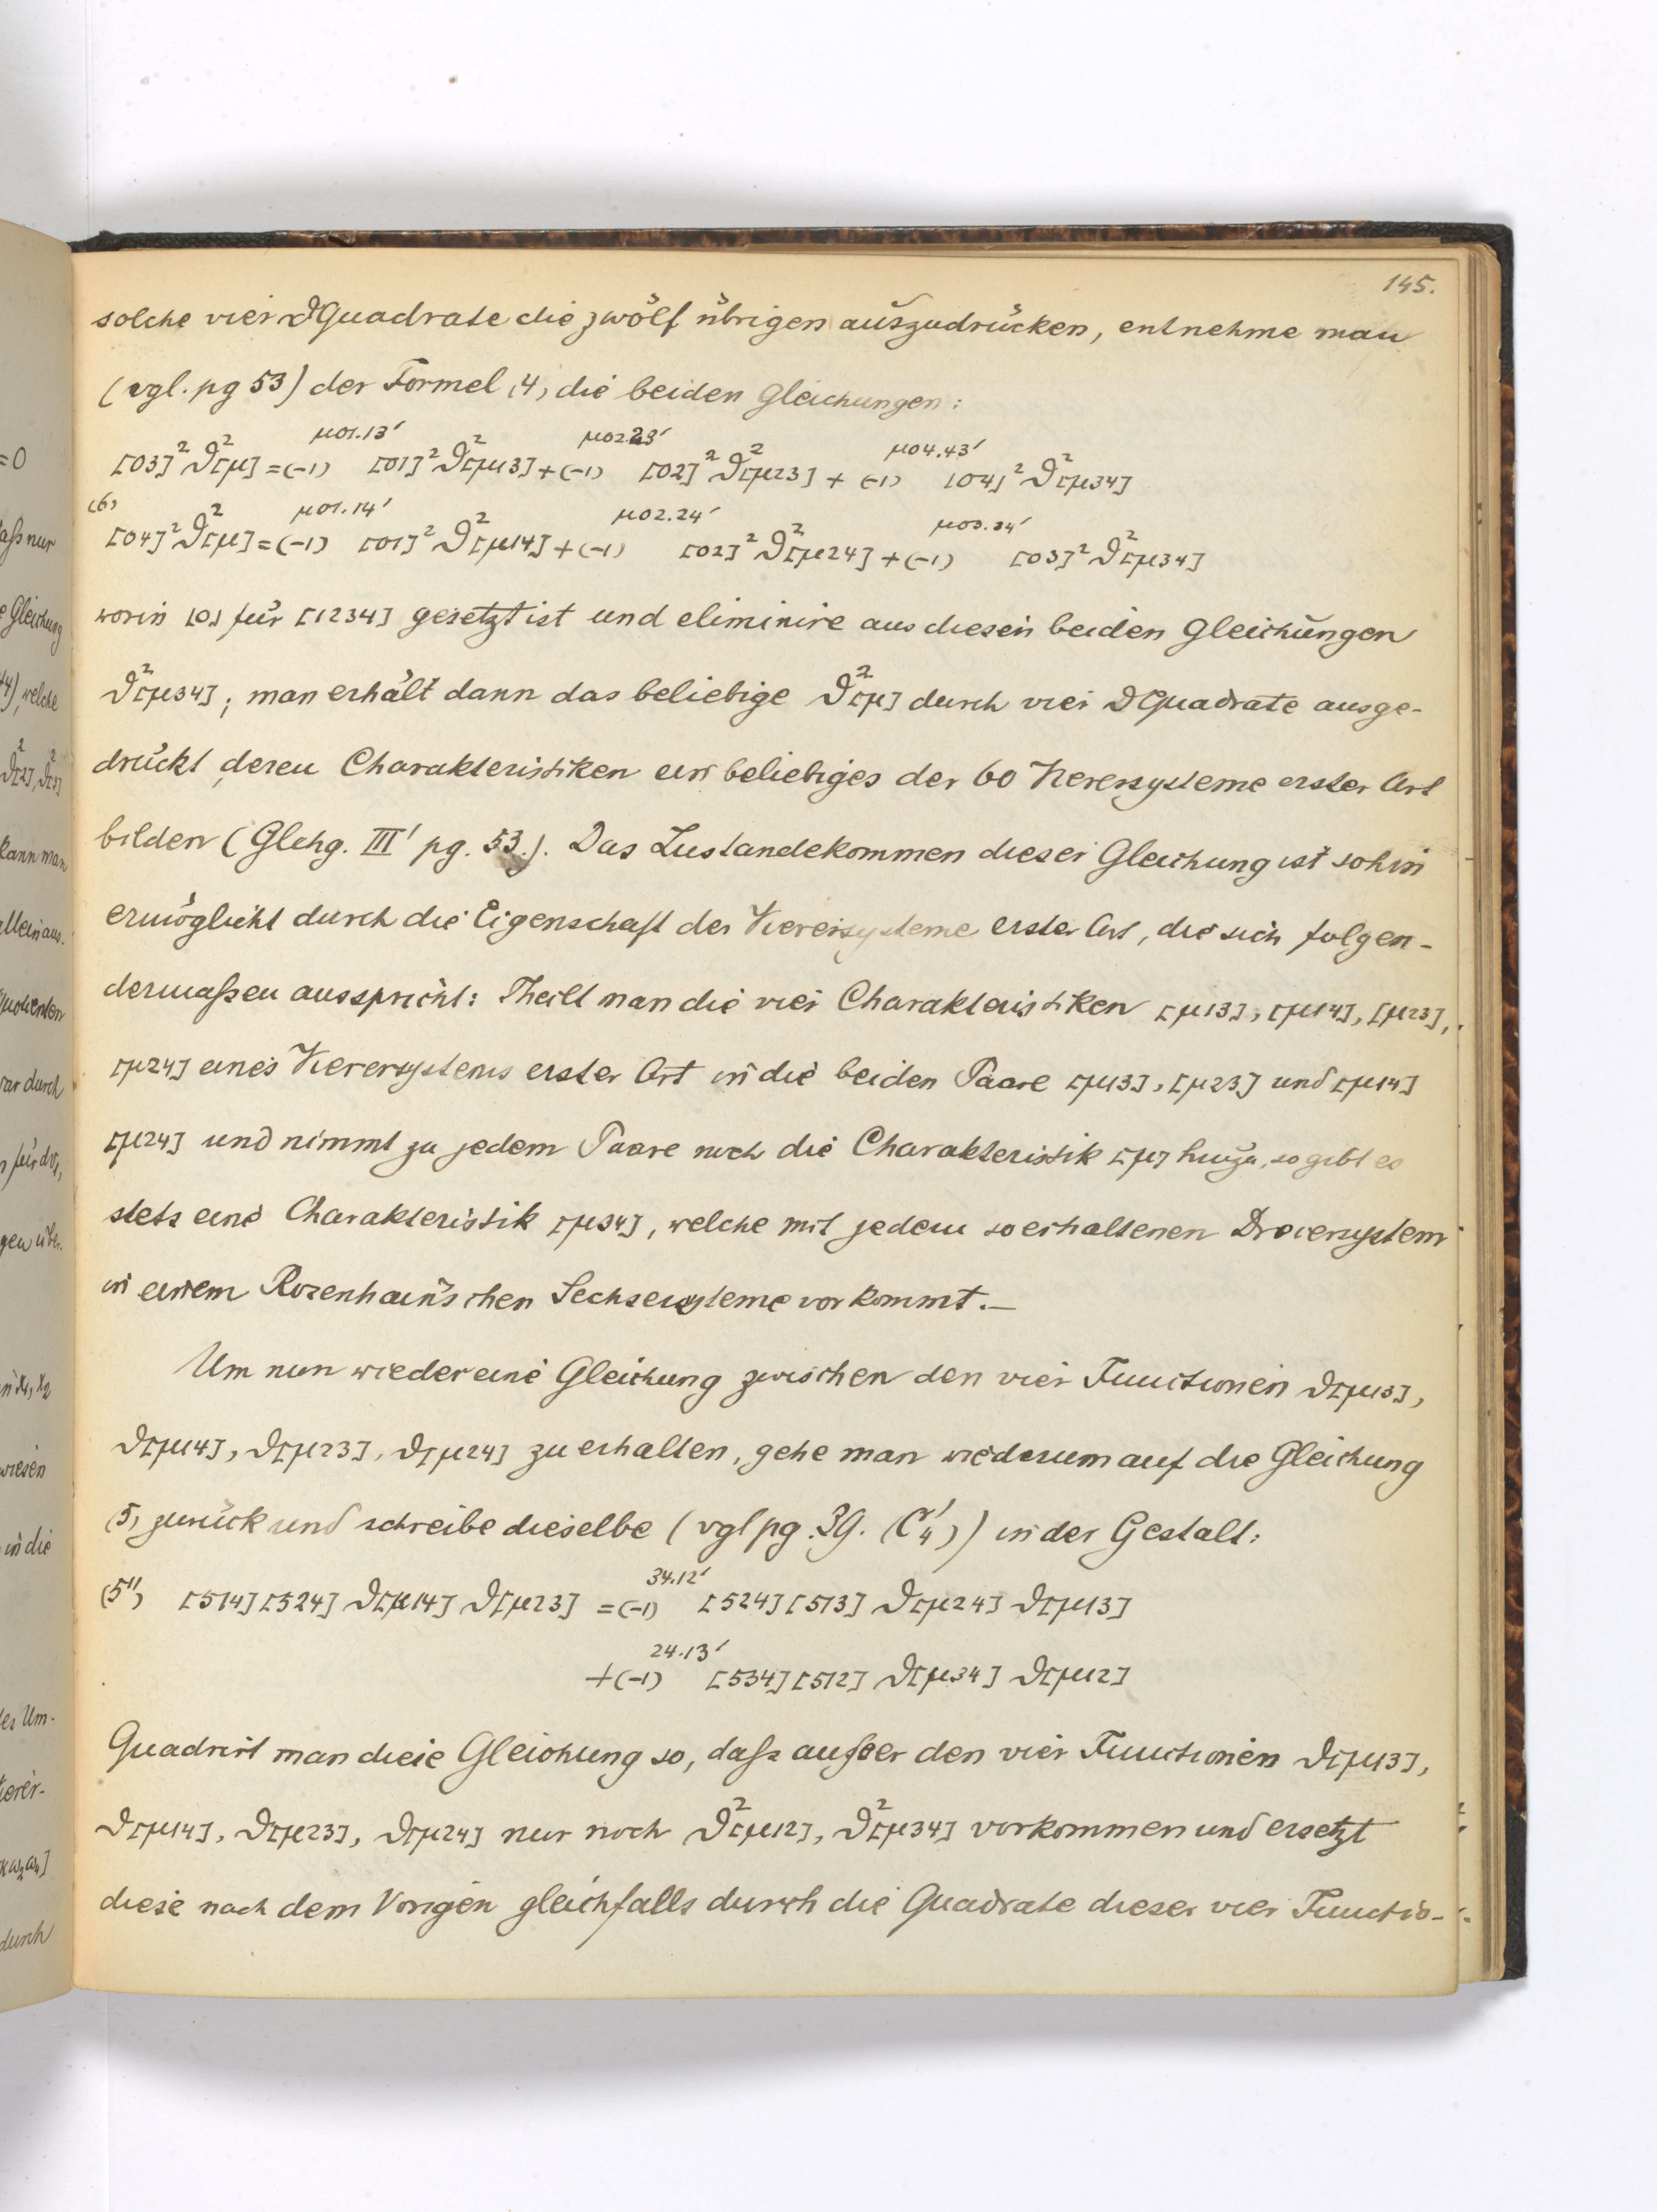 145.
solche vier ϑQuadrate die zwölf übrigen auszudrücken, entnehme man
(vgl. pg 53) der Formel (4) die beiden Gleichungen:
[03]² ϑ²[μ] = (-1)^{μ01.13'} [01]² ϑ²[μ13] + (-1)^{μ02.23'} [02]² ϑ²[μ23] + (-1)^{μ04.43'} [04]² ϑ²[μ34]
(6)
[04]² ϑ²[μ] = (-1)^{μ01.14'} [01]² ϑ²[μ14] + (-1)^{μ02.24'} [02]² ϑ²[μ24] + (-1)^{μ03.34'} [03]² ϑ²[μ34]
worin [0] für [1234] gesetzt ist und eliminire aus diesen beiden Gleichungen
ϑ²[μ34]; man erhält dann das beliebige ϑ²[μ] durch vier ϑQuadrate ausge-
drückt, deren Charakteristiken ein beliebiges der 60 Vierersysteme erster Art
bilden (Glchg. III' pg. 53.). Das Zustandekommen dieser Gleichung ist sohin
ermöglicht durch die Eigenschaft der Vierersysteme erster Art, die sich folgen-
dermaßen ausspricht: Theilt man die vier Charakteristiken [μ13], [μ14], [μ23],
[μ24] eines Vierersystems erster Art in die beiden Paare [μ13], [μ23] und [μ14]
[μ24] und nimmt zu jedem Paare noch die Charakteristik [μ] hinzu, so gibt es
stets eine Charakteristik [μ34], welche mit jedem so erhaltenen Dreiersystem
in einem Rosenhain'schen Sechsersysteme vorkommt.—
Um nun wieder eine Gleichung zwischen den vier Functionen ϑ[μ13],
ϑ[μ14], ϑ[μ23], ϑ[μ24] zu erhalten, gehe man wiederum auf die Gleichung
(5) zurück und schreibe dieselbe (vgl pg. 39. (C'₄)) in der Gestalt:
(5'') [514][324] ϑ[μ14] ϑ[μ23] = (-1)^{34.12'} [524][513] ϑ[μ24] ϑ[μ13]
+ (-1)^{24.13'} [534][512] ϑ[μ34] ϑ[μ12]
Quadrirt man diese Gleichung so, daß außer den vier Functionen ϑ[μ13],
ϑ[μ14], ϑ[μ23], ϑ[μ24] nur noch ϑ²[μ12], ϑ²[μ34] vorkommen und ersetzt
diese nach dem Vorigen gleichfalls durch die Quadrate dieser vier Functio-